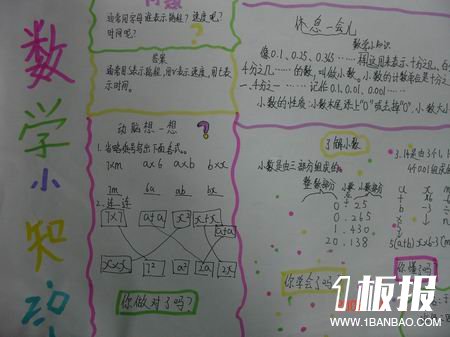 数
学
小
知
识
通常用字母谁表示路程？速度呢？
时间呢？
答案
通常用S表示路程，用v表示速度，用t表示时间。
动脑想一想？
1.省略乘号写出下面各式。
7×m a×6 a×b b×x
7m 6a ab bx
2.连一连
7×7 a+a x² x+x
a×a
x×x 7² a² 2a 2x
你做对了吗？
休息一会儿
数学小知识
像0.1、0.25、0.365……用来表示十分几、百
分之几……的数，叫做小数。小数的计数单位是十分之
一、……记作0.1、0.01、0.001……
小数的性质：小数末尾添上"0"或去掉"0"，小数大小
了解小数
小数是由三部分组成的。
整数部分 小数点 小数部分
0 . 25
0 . 265
1 . 430
20 . 138
你学会了吗
你懂了吗
1板报
WWW.1BANBAO.COM